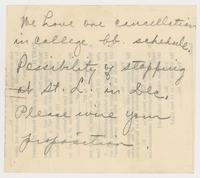 We have one cancellation
in college bb. schedule.
Possibility of stopping
at St. L. in Dec.
Please wire your
proposition.